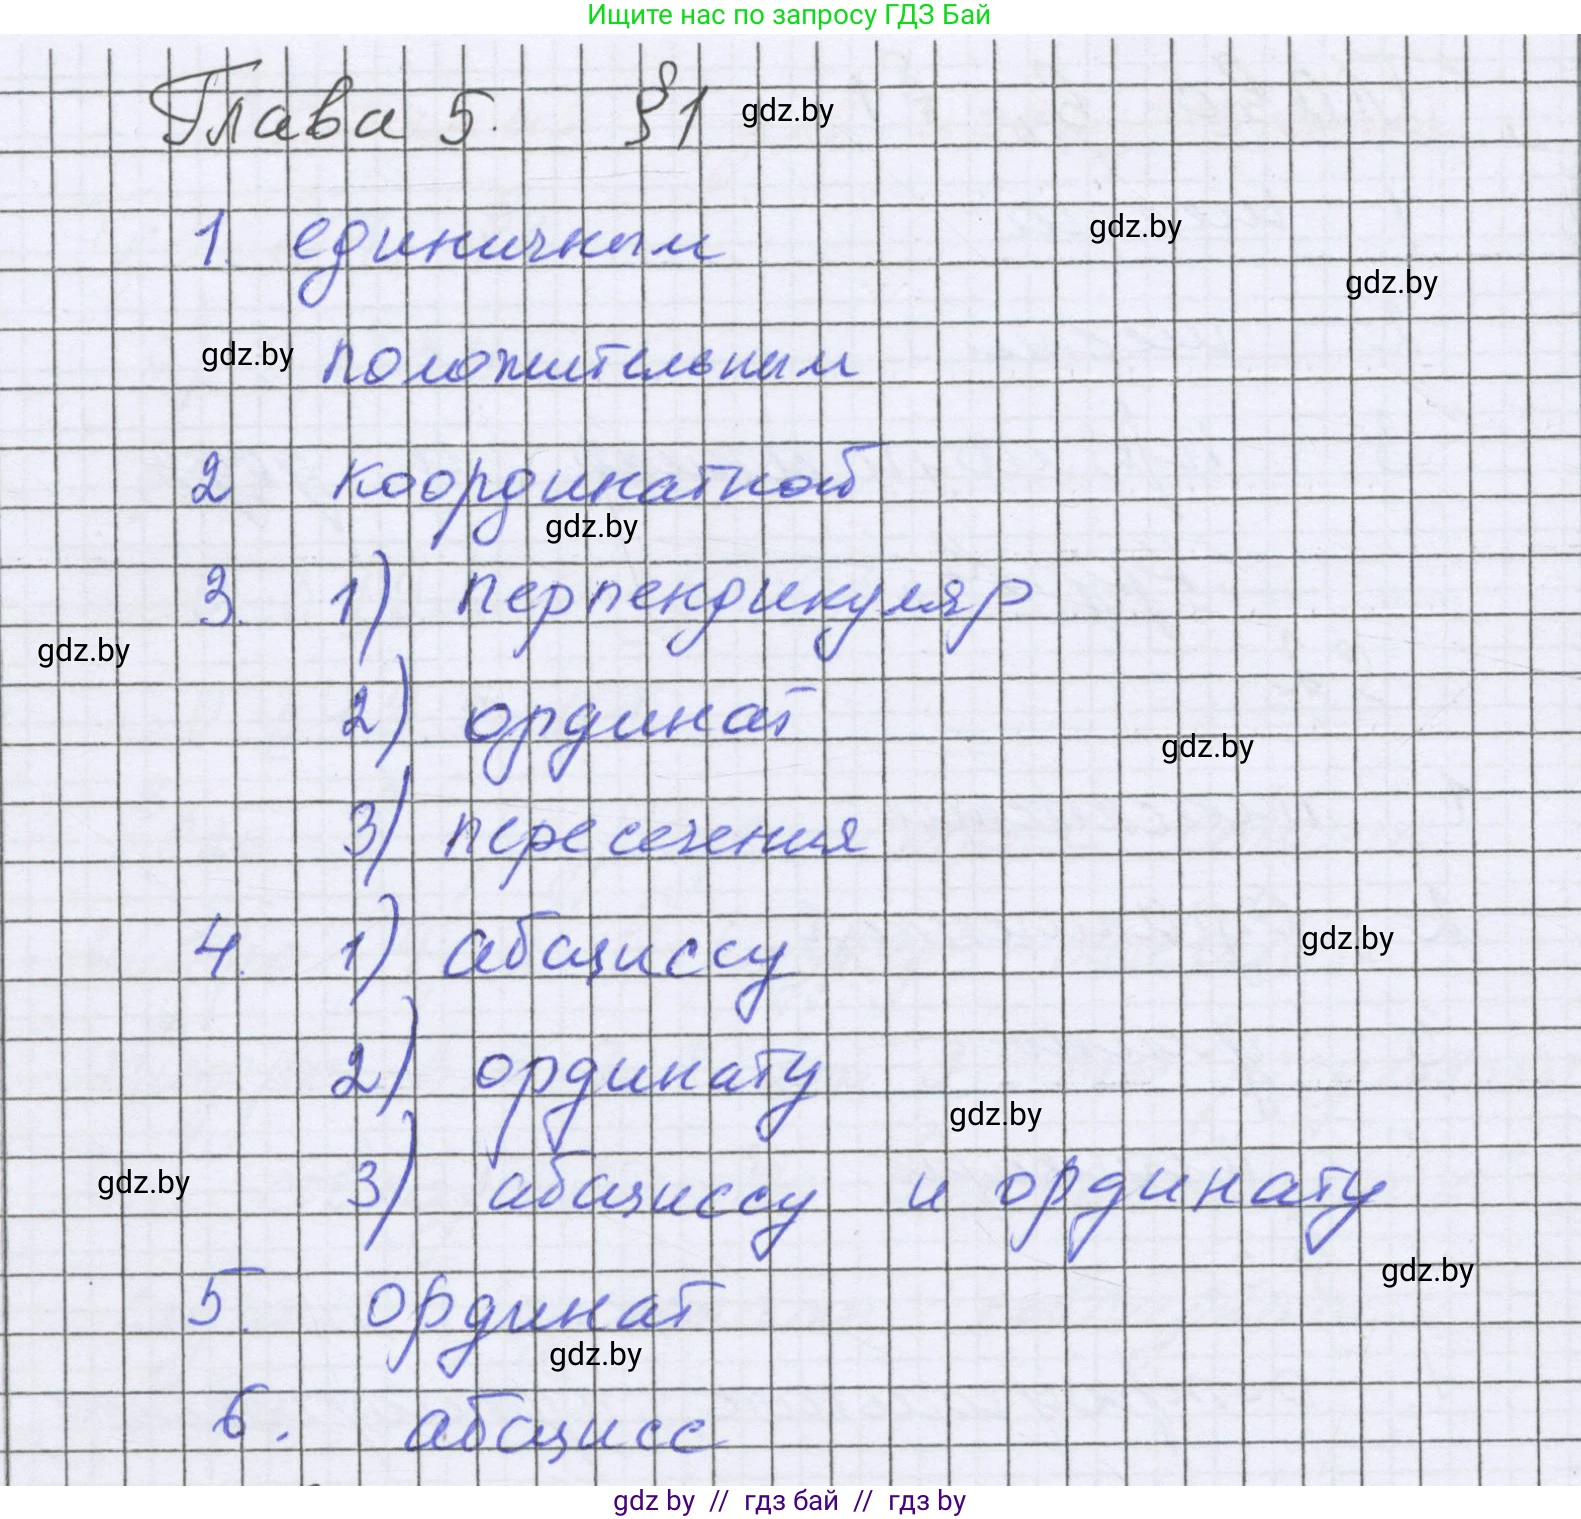 Ищите нас по запросу ГДЗ Бай
Глава 5. §1 gdz.by
1. единичным gdz.by
gdz.by
gdz.by положительным
2 координатной
gdz.by
3. 1) перпендикуляр
gdz.by
2) ординат
gdz.by
3) пересечения
4. 1) абсциссу gdz.by
2) ординату
gdz.by
gdz.by 3) абсциссу и ординату
gdz.by
5. ординат
gdz.by
6. абсцисс
gdz by // гдз бай // гдз by